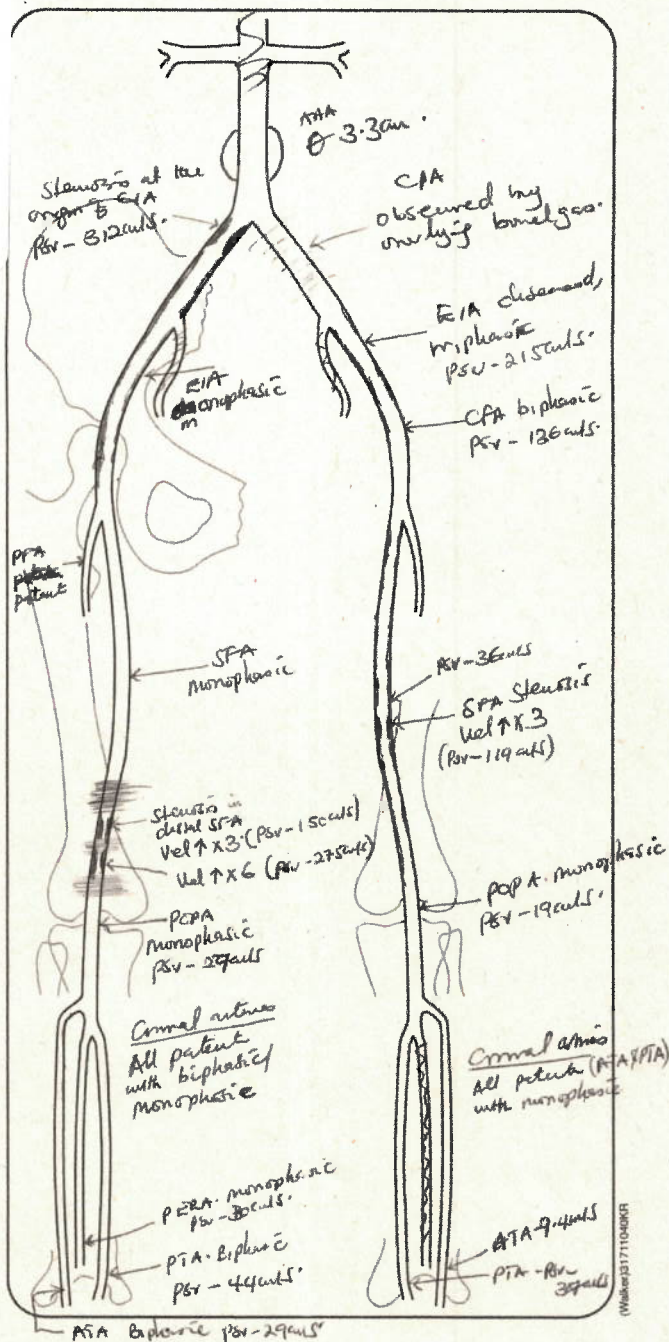 AAA
θ 3.3cm.
Stenosis at the
origin
EIA
PSV - 312cm/s.
CIA
obscured by
overlying bowel gas.
EIA diseased,
triphasic
PSV - 215cm/s.
EIA
monophasic
m
CFA biphasic
PSV - 136cm/s.
PFA
patent
SFA
monophasic
PSV - 36cm/s
SFA Stenosis
Vel ↑ x 3
(PSV - 119cm/s)
Stenosis in
distal SFA
Vel ↑ x 3 (PSV - 150cm/s)
Vel ↑ x 6 (PSV - 275cm/s)
POPA
monophasic
PSV - 29cm/s
POPA. monophasic
PSV - 19cm/s.
All patent
with biphasic/
monophasic
All patent (ATA & PTA)
with monophasic
PERA. monophasic
PSV - 30cm/s.
PTA. Biphasic
PSV - 44cm/s.
ATA Biphasic PSV - 29cm/s
ATA - 9.4cm/s
PTA - PSV -
(Walker)31711040KR